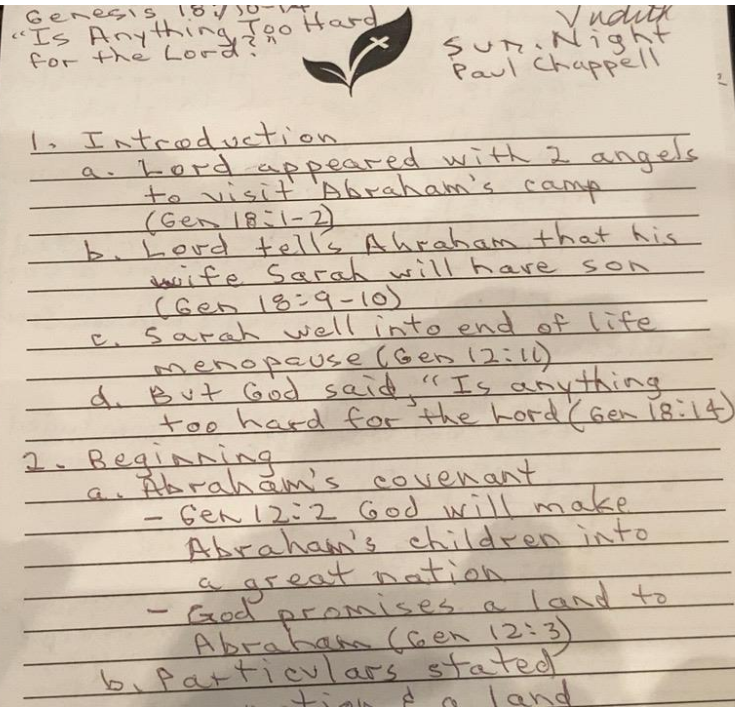 Genesis 18:10-14
"Is Anything Too Hard
for the Lord?"
Judith
Sun. Night
Paul Chappell
1. Introduction
a. Lord appeared with 2 angels
to visit Abraham's camp
(Gen 18:1-2)
b. Lord tells Ahraham that his
wife Sarah will have son
(Gen 18:9-10)
c. Sarah well into end of life
menopause (Gen 12:11)
d. But God said, "Is anything
too hard for the Lord (Gen 18:14)
2. Beginning
a. Abraham's covenant
- Gen 12:2 God will make
Abraham's children into
a great nation
- God promises a land to
Abraham (Gen 12:3)
b. Particulars stated
& a land